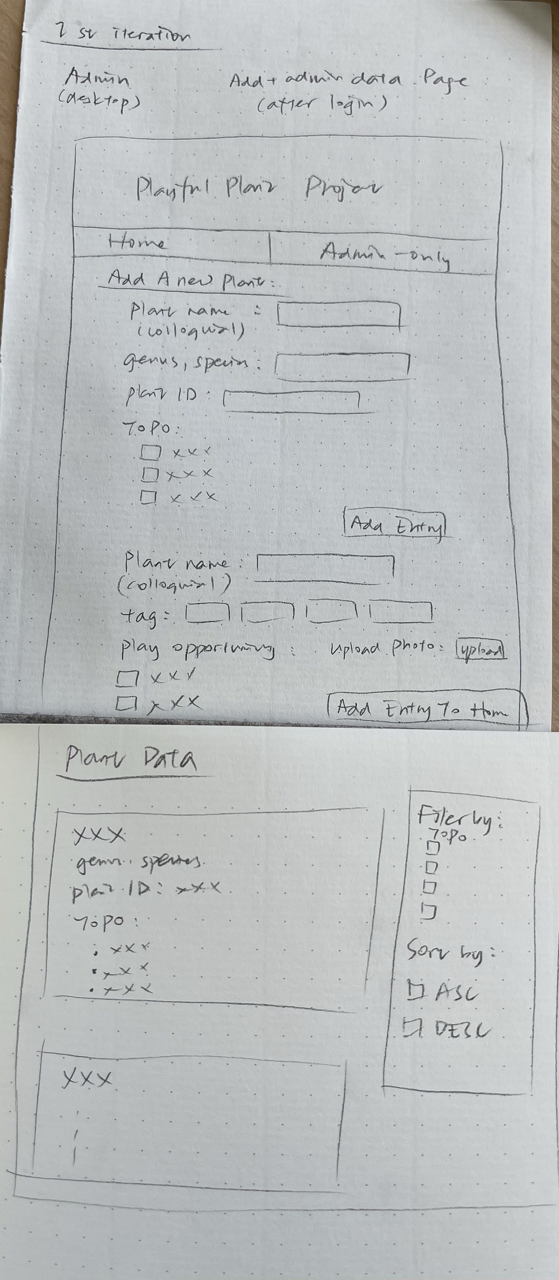 1st iteration
Admin
(desktop)
Add + admin data Page
(after login)
Playful Plant Project
Home
Admin-only
Add A new Plant:
Plant name :
(colloquial)
genus, species:
plant ID:
TOPO:
xxx
xxx
xxx
Add Entry
Plant name:
(colloquial)
tag:
play opportunity:
upload photo:
upload
xxx
xxx
Add Entry To Home
Plant Data
XXX
genus. species
plant ID: xxx
TOPO:
• xxx
• xxx
• xxx
Filter by:
TOPO
Sort by:
ASC
DESC
XXX